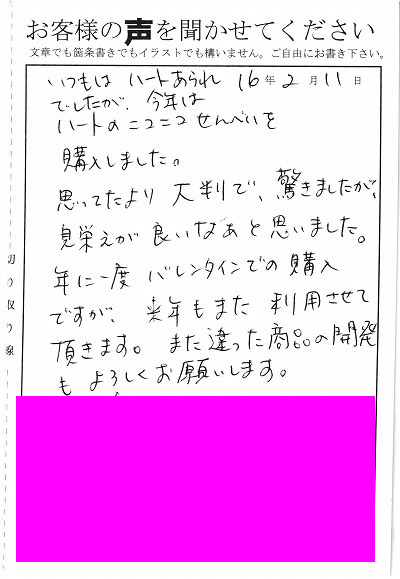 お客様の声を聞かせてください
文章でも箇条書きでもイラストでも構いません。ご自由にお書き下さい。
16年2月11日
いつもは ハートあられ
でしたが、今年は
ハートのニコニコせんべいを
購入しました。
思ってたより 大判で、驚きましたが、
見栄えが良いなぁと思いました。
年に一度 バレンタインでの購入
ですが、来年もまた 利用させて
頂きます。また違った商品の開発
も よろしくお願いします。
切り取り線